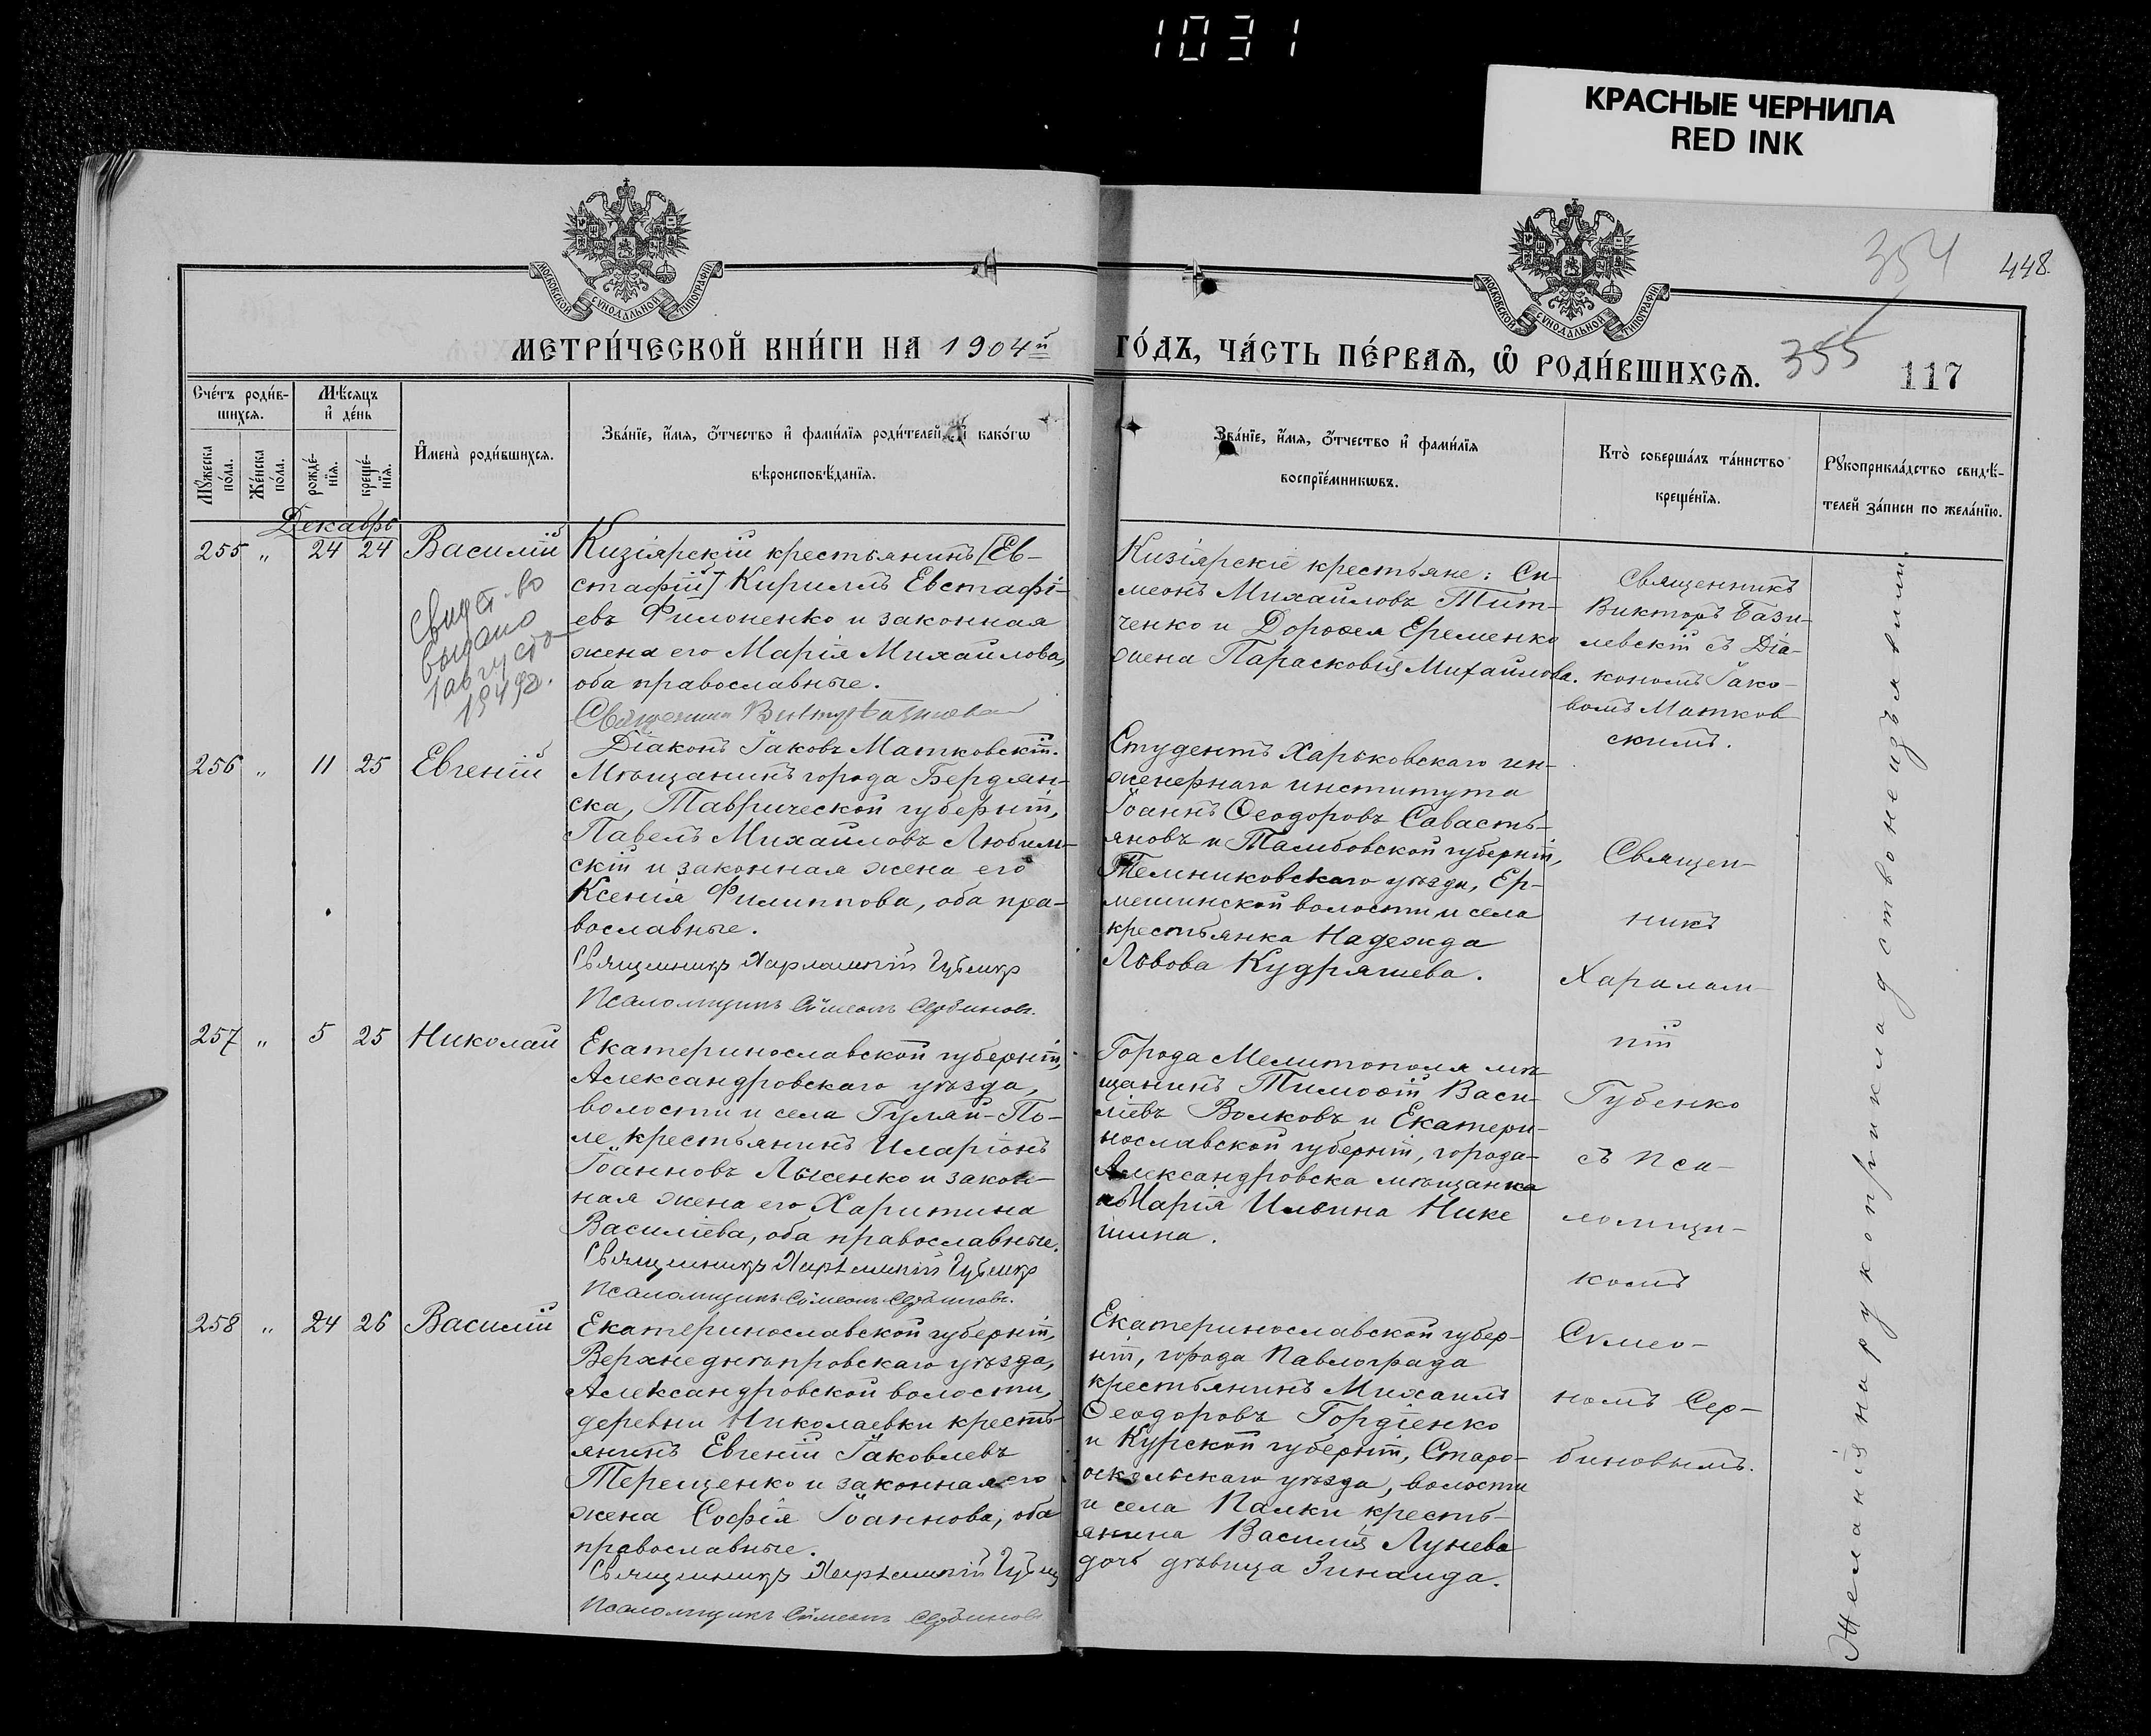 1031
КРАСНЫЕ ЧЕРНИЛА
RED INK
МОСКОВСКОЙ СУНОДАЛЬНОЙ ТИПОГРАФІИ
МОСКОВСКОЙ СУНОДАЛЬНОЙ ТИПОГРАФІИ
354
448.
МЕТРИ́ЧЕСКОЙ КНИ́ГИ НА 1904й
ГО́ДЪ, ЧА́СТЬ ПЕ́РВАѦ, Ѡ҆ РОДИ́ВШИХСѦ.
355
117
Сче́тъ роди́в-
шихсѧ.
Мꙋ́жеска
по́ла.
Же́нска
по́ла.
Мѣ́сѧцъ
и҆ де́нь
рожде́-
нїѧ.
креще́-
нїѧ.
И҆мена̀ роди́вшихсѧ.
Зва́нїе, и҆́мѧ, ѻ҆́тчество и҆ фами́лїѧ роди́телей, и҆ како́гѡ
вѣроисповѣ́данїѧ.
Зва́нїе, и҆́мѧ, ѻ҆́тчество и҆ фами́лїѧ
воспрїе́мникѡвъ.
Кто̀ соверша́лъ та́инство
креще́нїѧ.
Рꙋкоприкла́дство свидѣ́-
телей за́писи по жела́нїю.
Декабрь
255 „ 24 24 Василій
Свидѣт-во
выдано
1 августа
Кизіярскій крестьянинъ [Ев-
стафій] Кириллъ Евстафі-
евъ Филоненко и законная
жена его Марія Михаилова,
оба православные.
Діаконъ Іаковъ Матковскій.
Кизіярскіе крестьяне: Си-
меонъ Михаиловъ Тит-
ченко и Дороѳея Еременко
жена Парасковія Михаилова.
Священникъ
Викторъ Бази-
левскій съ Діа-
кономъ Іако-
вомъ Матков
скимъ.
256 „ 11 25 Евгеній
Мѣщанинъ города Бердян-
ска, Таврической губерніи,
Павелъ Михаиловъ Любим-
скій и законная жена его
Ксенія Филиппова, оба пра-
вославные.
Священникъ Харлампій Губенко
Псаломщикъ Сѵмеонъ Сербиновъ.
Студентъ Харьковскаго ин-
женернаго института
Іоаннъ Ѳеодоровъ Савасть-
яновъ и Тамбовской губерніи,
Темниковскаго уѣзда, Ер-
мешинской волости и села
крестьянка Надежда
Львова Кудряшева.
257 „ 5 25 Николай
Екатеринославской губерніи,
Александровскаго уѣзда,
волости и села Гуляй-По-
ле, крестьянинъ Иларіонъ
Іоанновъ Лысенко и закон-
ная жена его Харитина
Василіева, оба православные.
Священникъ Харлампій Губенко
Псаломщикъ Сѵмеонъ Сербиновъ.
Города Мелитополя мѣ-
щанинъ Тимоѳій Васи-
ліевъ Волковъ и Екатери-
нославской губерніи, города
Александровска мѣщанка
Марія Ильина Нике
шина.
258 „ 24 26 Василій
Екатеринославской губерніи,
Верхнеднѣпровскаго уѣзда,
Александровской волости,
деревни Николаевки кресть-
янинъ Евгеній Іаковлевъ
Терещенко и законная его
жена Софія Іоаннова, оба
православные.
Священникъ Харлампій Губенко
Псаломщикъ Сѵмеонъ Сербиновъ
Екатеринославской губер-
ніи, города Павлограда
крестьянинъ Михаилъ
Ѳеодоровъ Гордіенко
и Курской губерніи, Старо-
оскольскаго уѣзда, волости
и села Палки кресть-
янина Василія Лунева
дочь дѣвица Зинаида.
Священ-
никъ
Харалам-
пій
Губенко
съ Пса-
ломщи-
комъ
Сѵмео-
номъ Сер-
биновымъ.
Желанія на рукоприкладство не изъявили.